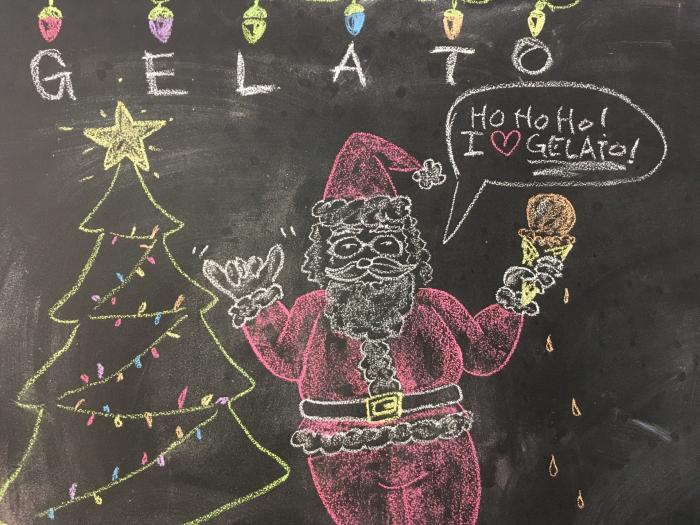 GELATO
Ho Ho Ho!
I ♡ GELATO!